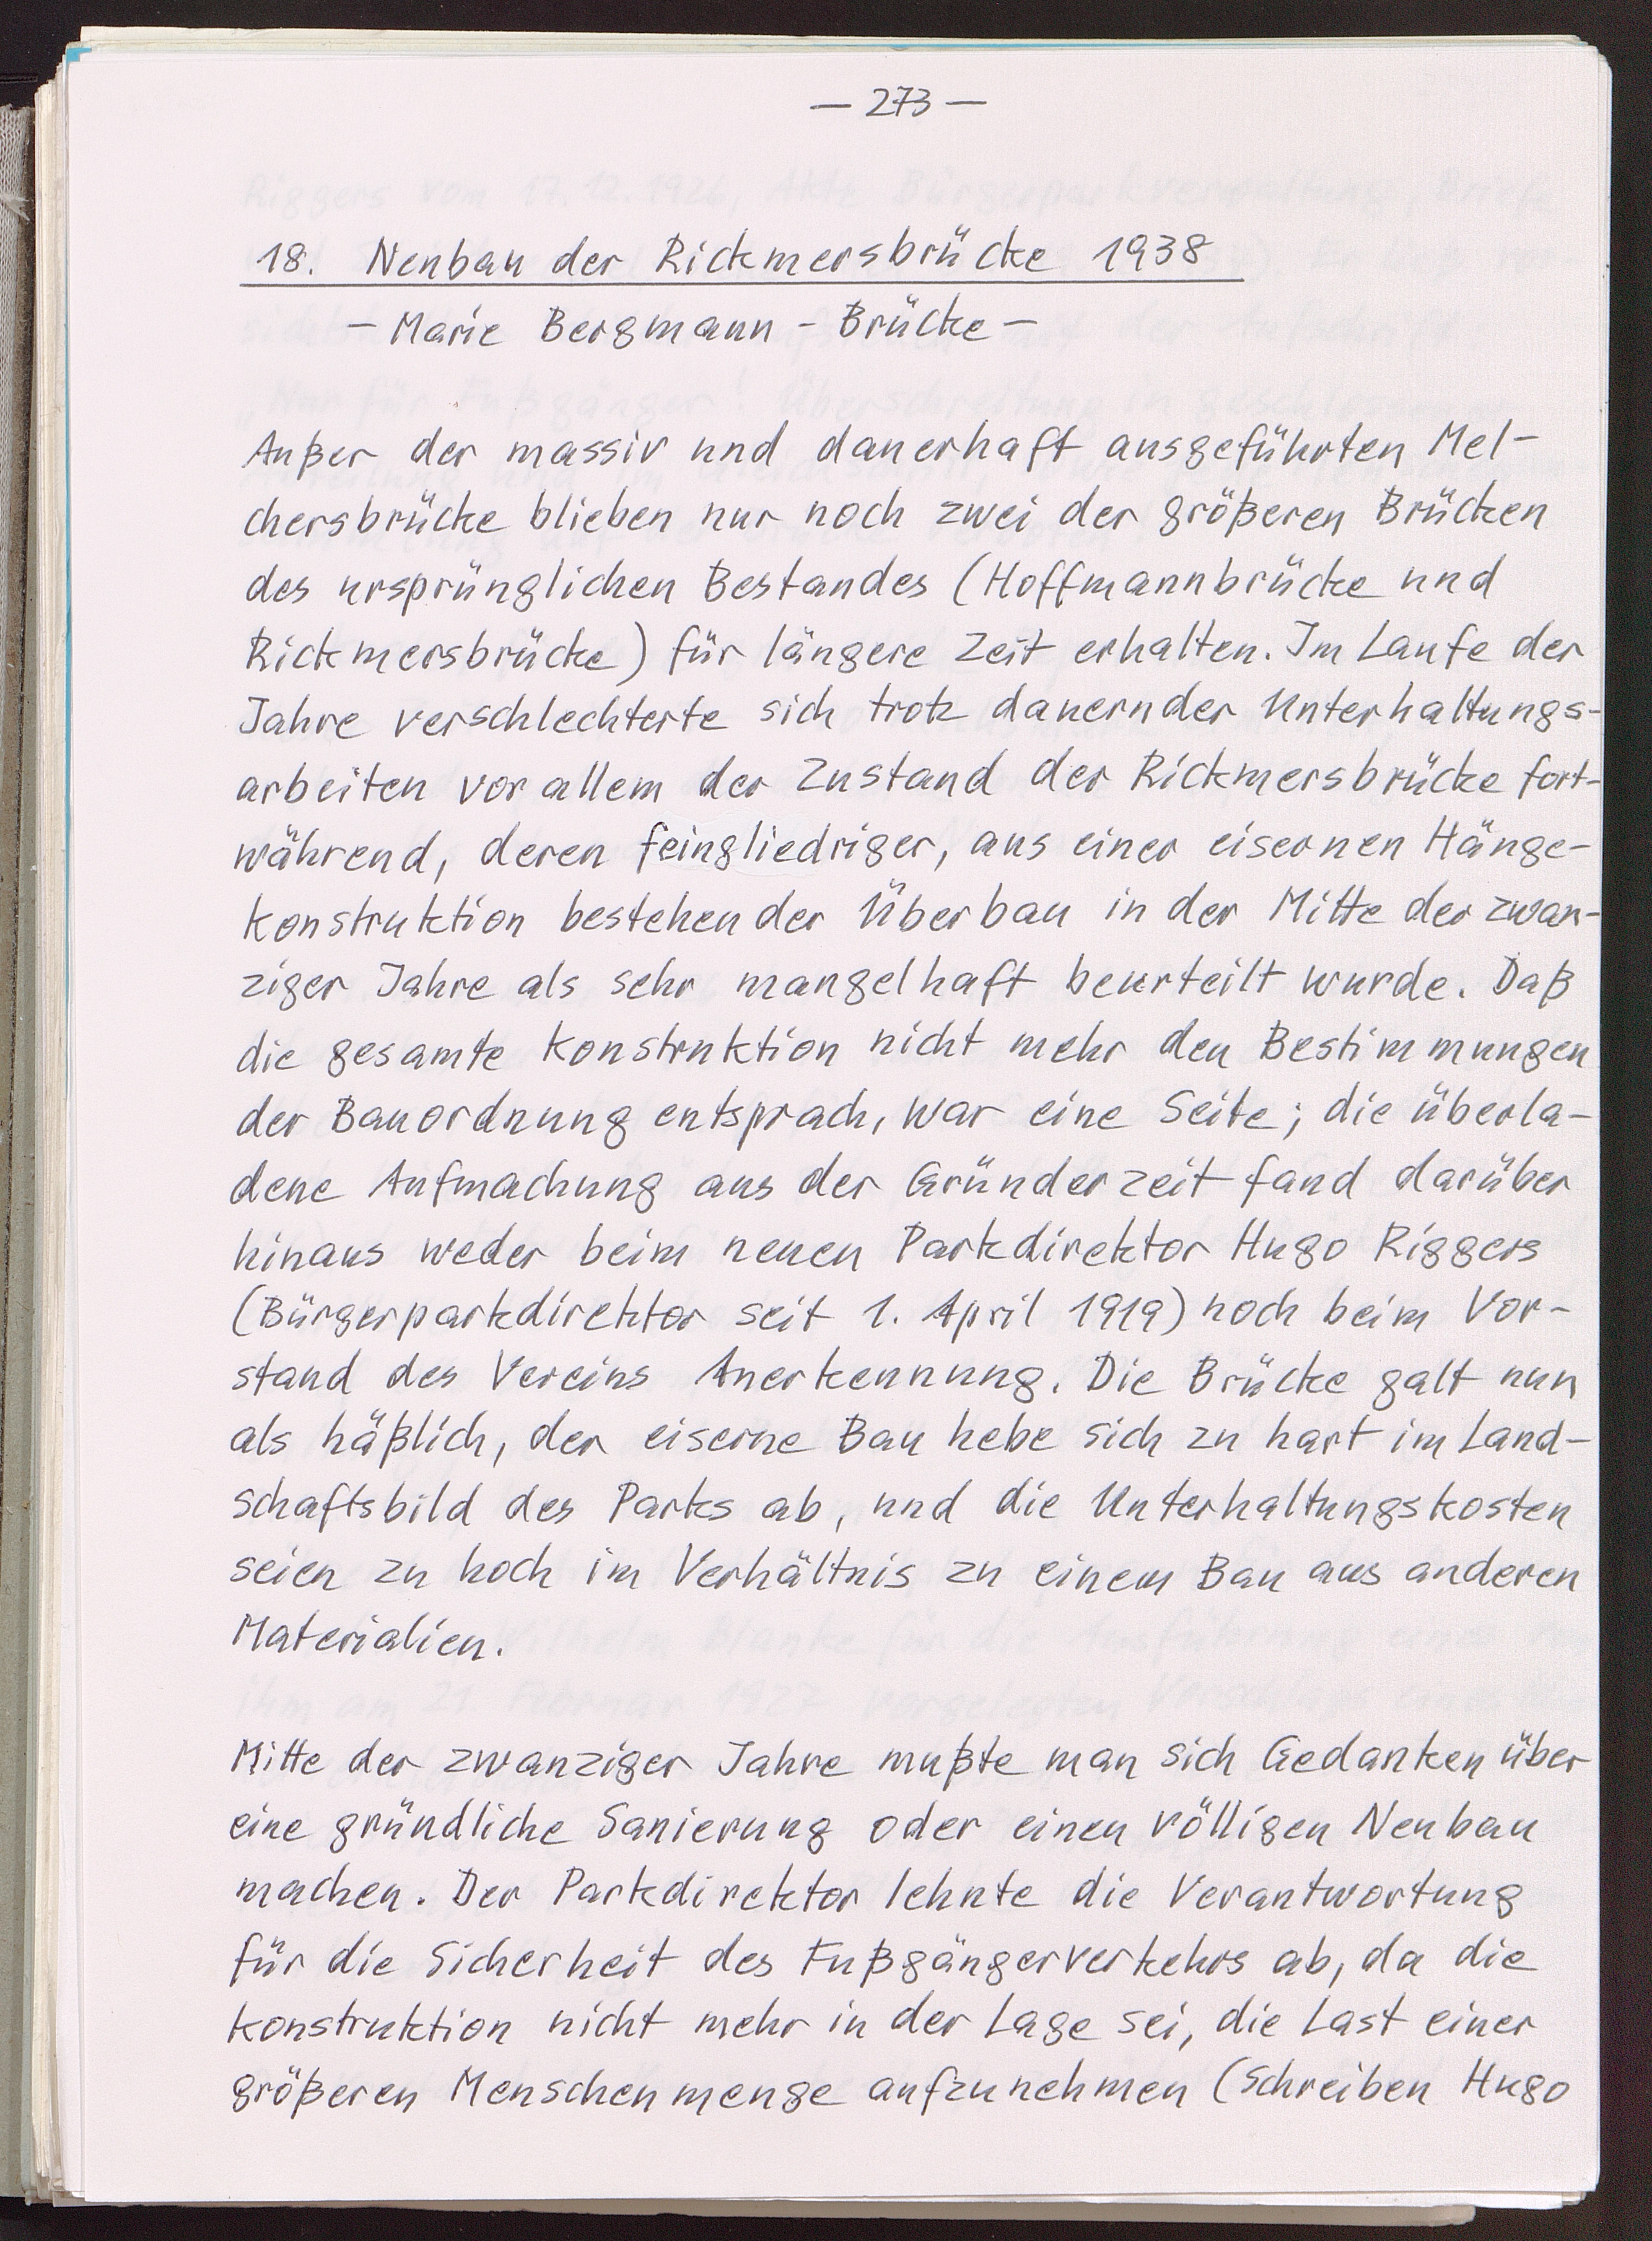 — 273 —
18. Neubau der Rickmersbrücke 1938
— Marie Bergmann - Brücke —
Außer der massiv und dauerhaft ausgeführten Mel-
chersbrücke blieben nur noch zwei der größeren Brücken
des ursprünglichen Bestandes (Hoffmannbrücke und
Rickmersbrücke) für längere Zeit erhalten. Im Laufe der
Jahre verschlechterte sich trotz dauernder Unterhaltungs-
arbeiten vor allem der Zustand der Rickmersbrücke fort-
während, deren feingliedriger, aus einer eisernen Hänge-
konstruktion bestehender Überbau in der Mitte der zwan-
ziger Jahre als sehr mangelhaft beurteilt wurde. Daß
die gesamte Konstruktion nicht mehr den Bestimmungen
der Bauordnung entsprach, war eine Seite; die überla-
dene Aufmachung aus der Gründerzeit fand darüber
hinaus weder beim neuen Parkdirektor Hugo Riggers
(Bürgerparkdirektor seit 1. April 1919) noch beim Vor-
stand des Vereins Anerkennung. Die Brücke galt nun
als häßlich, der eiserne Bau hebe sich zu hart im Land-
schaftsbild des Parks ab, und die Unterhaltungskosten
seien zu hoch im Verhältnis zu einem Bau aus anderen
Materialien.
Mitte der zwanziger Jahre mußte man sich Gedanken über
eine gründliche Sanierung oder einen völligen Neubau
machen. Der Parkdirektor lehnte die Verantwortung
für die Sicherheit des Fußgängerverkehrs ab, da die
Konstruktion nicht mehr in der Lage sei, die Last einer
größeren Menschenmenge aufzunehmen (Schreiben Hugo